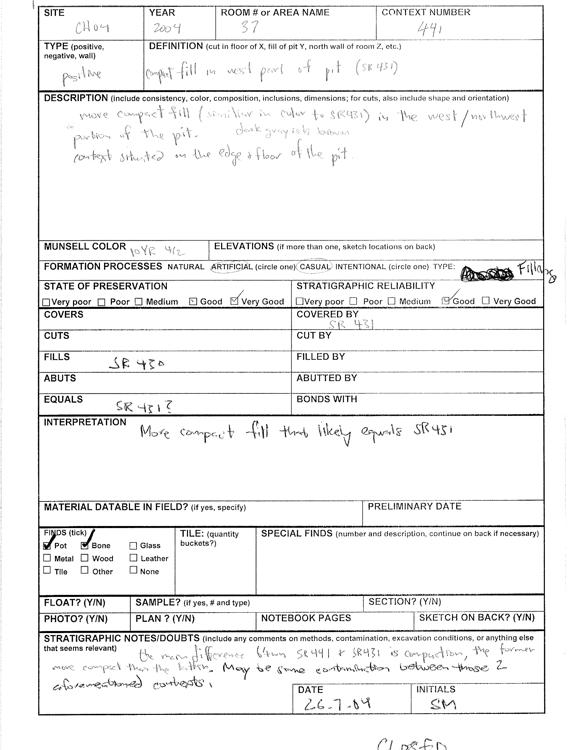 SITE YEAR ROOM # or AREA NAME CONTEXT NUMBER
CH04 2004 37 441
TYPE (positive, negative, wall) DEFINITION (cut in floor of X, fill of pit Y, north wall of room Z, etc.)
positive compact fill in west part of pit (SR 431)
DESCRIPTION (include consistency, color, composition, inclusions, dimensions; for cuts, also include shape and orientation)
more compact fill (similar in color to SR431) in the west/northwest
portion of the pit. dark grayish brown
context situated on the edge & floor of the pit.
MUNSELL COLOR 10YR 4/2 ELEVATIONS (if more than one, sketch locations on back)
FORMATION PROCESSES NATURAL ARTIFICIAL (circle one) CASUAL INTENTIONAL (circle one) TYPE: Filling
STATE OF PRESERVATION STRATIGRAPHIC RELIABILITY
Very poor Poor Medium Good Very Good Very poor Poor Medium Good Very Good
COVERS COVERED BY
SR 431
CUTS CUT BY
FILLS SR 430 FILLED BY
ABUTS ABUTTED BY
EQUALS SR 431? BONDS WITH
INTERPRETATION
More compact fill that likely equals SR431
MATERIAL DATABLE IN FIELD? (if yes, specify) PRELIMINARY DATE
FINDS (tick) TILE: (quantity buckets?) SPECIAL FINDS (number and description, continue on back if necessary)
Pot Bone Glass
Metal Wood Leather
Tile Other None
FLOAT? (Y/N) SAMPLE? (if yes, # and type) SECTION? (Y/N)
PHOTO? (Y/N) PLAN ? (Y/N) NOTEBOOK PAGES SKETCH ON BACK? (Y/N)
STRATIGRAPHIC NOTES/DOUBTS (include any comments on methods, contamination, excavation conditions, or anything else
that seems relevant) the main difference btwn SR 441 & SR431 is compaction, the former
more compact than the latter. May be some contamination between those 2
aforementioned contexts.
DATE INITIALS
26.7.04 SM
CLOSED